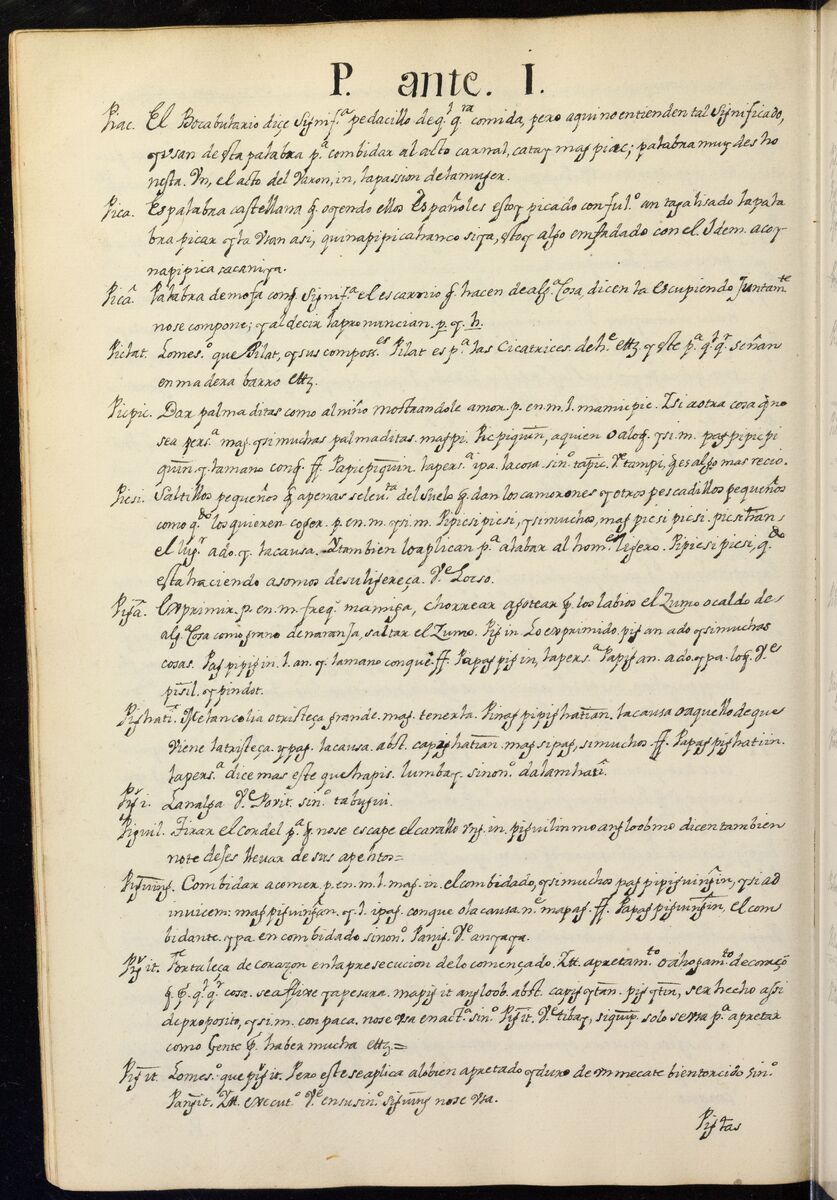 P. ante. I.
Piac. El Bocabulario dice Signif.ª pedacillo de q.l q.ra comida, pero aqui no entienden tal Significado,
y vsan de esta palabra p.ª combidar al acto carnal, catay mag piac; palabra muy desho
nesta. Vn, el acto del Varon, in, la passion de la muger.
Pica. Es palabra castellana q. oyendo ellos Españoles estoy picado con ful.º an tagalisado la pala
bra picar y la vsan asi, quinapipicahanco siya, estoy algo enfadado con el. Idem. acoy
napipica sa caniya.
Picâ. Palabra de mofa con q. Signif.ª el escarnio q. hacen de alg.ª Cosa, dicenla Escupiendo Juntam.te
no se compone; y al decirla pronuncian. p. y. h.
Pichat. Lo mes.º que Pilat, y sus composs.es Pilat es p.ª las Cicatrices. de h.e ettz. y este p.ª q.l q.r señ an
en madera barro ettz.
Picpic. Dar palmaditas como al niño mostrandole amor. p. en. m. l. mamicpic. Z si a otra cosa q. no
sea pers.ª mag. y si muchas palmaditas. magpi. Picpiquin, a quien o a lo q. y si. m. pag pipicpi
quin. y. la mano con q. ff. Papicpiquin. la pers.ª ipa. la cosa. sin.º tapic. V.e tampi, q. es algo mas recio.
Picsi. Saltillos pequeños q. apenas se leu.ta del Suelo q. dan los camorones y otros pescadillos pequeños
como q.do los quieren coger. p. en. m. y si. m. Pipicsi picsi, y si muchos, mag picsi picsi. picsihan,
el lug.r ado. y. la causa. Y tambien lo aplican p.ª alabar al hom.e ligero. Pipicsi picsi, q.do
esta haciendo asomos de su ligereça. V.e Locso.
Pigâ. Exprimir. p. en. m. freq.e mamiga, chorrear agotear q. los labios el Zumo o caldo de
alg.ª Cosa como grano de naranja, saltar el Zumo. Pig in Lo exprimido. pig an ado y si muchas
cosas. Pag pipig in. l. an. y. la mano con que. ff. Papag pig in, la pers.ª Papig an. ado. y pa. lo q. V.e
pisil. y pindot.
Pighatî. Melancolia o tristeça grande. mag. tenerla. Pinag pipighatian. la causa o aquello de que
viene la tristeça. y pag. la causa. abst. capighatian. mag sipag, si muchos ff. Papag pighatiin.
la pers.ª dice mas este que hapis. lumbay. sinon.º dalamhatî.
Pigi. La nalga V.e Povit. sin.º tabugui.
Piguil. Tirar el cordel p.ª q. no se escape el caballo vng. in. piguilin mo ang loob mo dicen tambien
no te dejes lleuar de sus apetitos=
Piguing. Combidar a comer. p. en. m. l. mag. in. el combidado, y si muchos pag pipiguingin, y si ad
invicem: mag piguingan. y. l. ipag. con que o la causa. n.e mapag. ff. Papag piguingin, el com
bidante. y pa. en combidado sinon.º Panig. V.e anyaya.
Pigit. Fortaleça de coraçon en la prosecucion de lo començado. Ztt. apretam.to o ahogam.to de coraçõ
q. p. q.l q.r cosa. se aflixe y apesara. mapigit ang loob. abst. capigtan. pigtin, ser hecho assi
de proposito, y si. m. con paca. no se vsa en act.ª sin.º Piguit. V.e tibay, siquip. solo se vsa p.ª apretar
como Gente q. haber mucha ettz=
Piguit. Lo mes.º que pigit. Pero este se aplica a lo bien apretado y duro de vn mecate bien torcido sin.º
Panguit. Ztt. execut.º V.e en su sin.º siguing no se vsa.
Pigtas